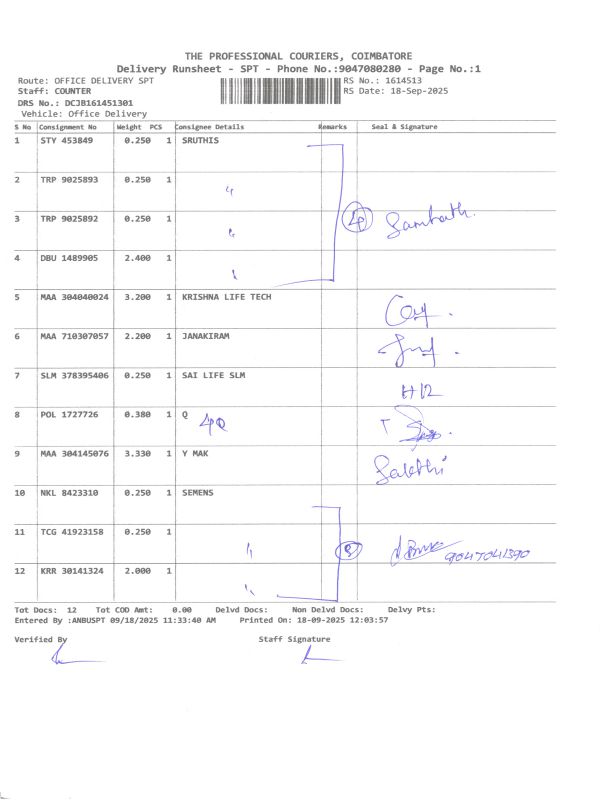 THE PROFESSIONAL COURIERS, COIMBATORE
Delivery Runsheet - SPT - Phone No.:9047080280 - Page No.:1
Route: OFFICE DELIVERY SPT RS No.: 1614513
Staff: COUNTER RS Date: 18-Sep-2025
DRS No.: DCJB161451301
Vehicle: Office Delivery
S No Consignment No Weight PCS Consignee Details Remarks Seal & Signature
1 STY 453849 0.250 1 SRUTHIS
2 TRP 9025893 0.250 1 "
3 TRP 9025892 0.250 1 " 4 Sambath.
4 DBU 1489905 2.400 1 "
5 MAA 304040024 3.200 1 KRISHNA LIFE TECH
6 MAA 710307057 2.200 1 JANAKIRAM
7 SLM 378395406 0.250 1 SAI LIFE SLM
8 POL 1727726 0.380 1 Q
9 MAA 304145076 3.330 1 Y MAK Sakthi
10 NKL 8423310 0.250 1 SEMENS
11 TCG 41923158 0.250 1 " 3 9047041390
12 KRR 30141324 2.000 1 "
Tot Docs: 12 Tot COD Amt: 0.00 Delvd Docs: Non Delvd Docs: Delvy Pts:
Entered By :ANBUSPT 09/18/2025 11:33:40 AM Printed On: 18-09-2025 12:03:57
Verified By Staff Signature